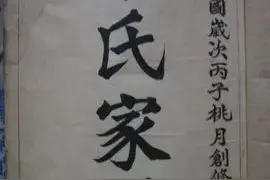 國歲次丙子桃月創修
氏家